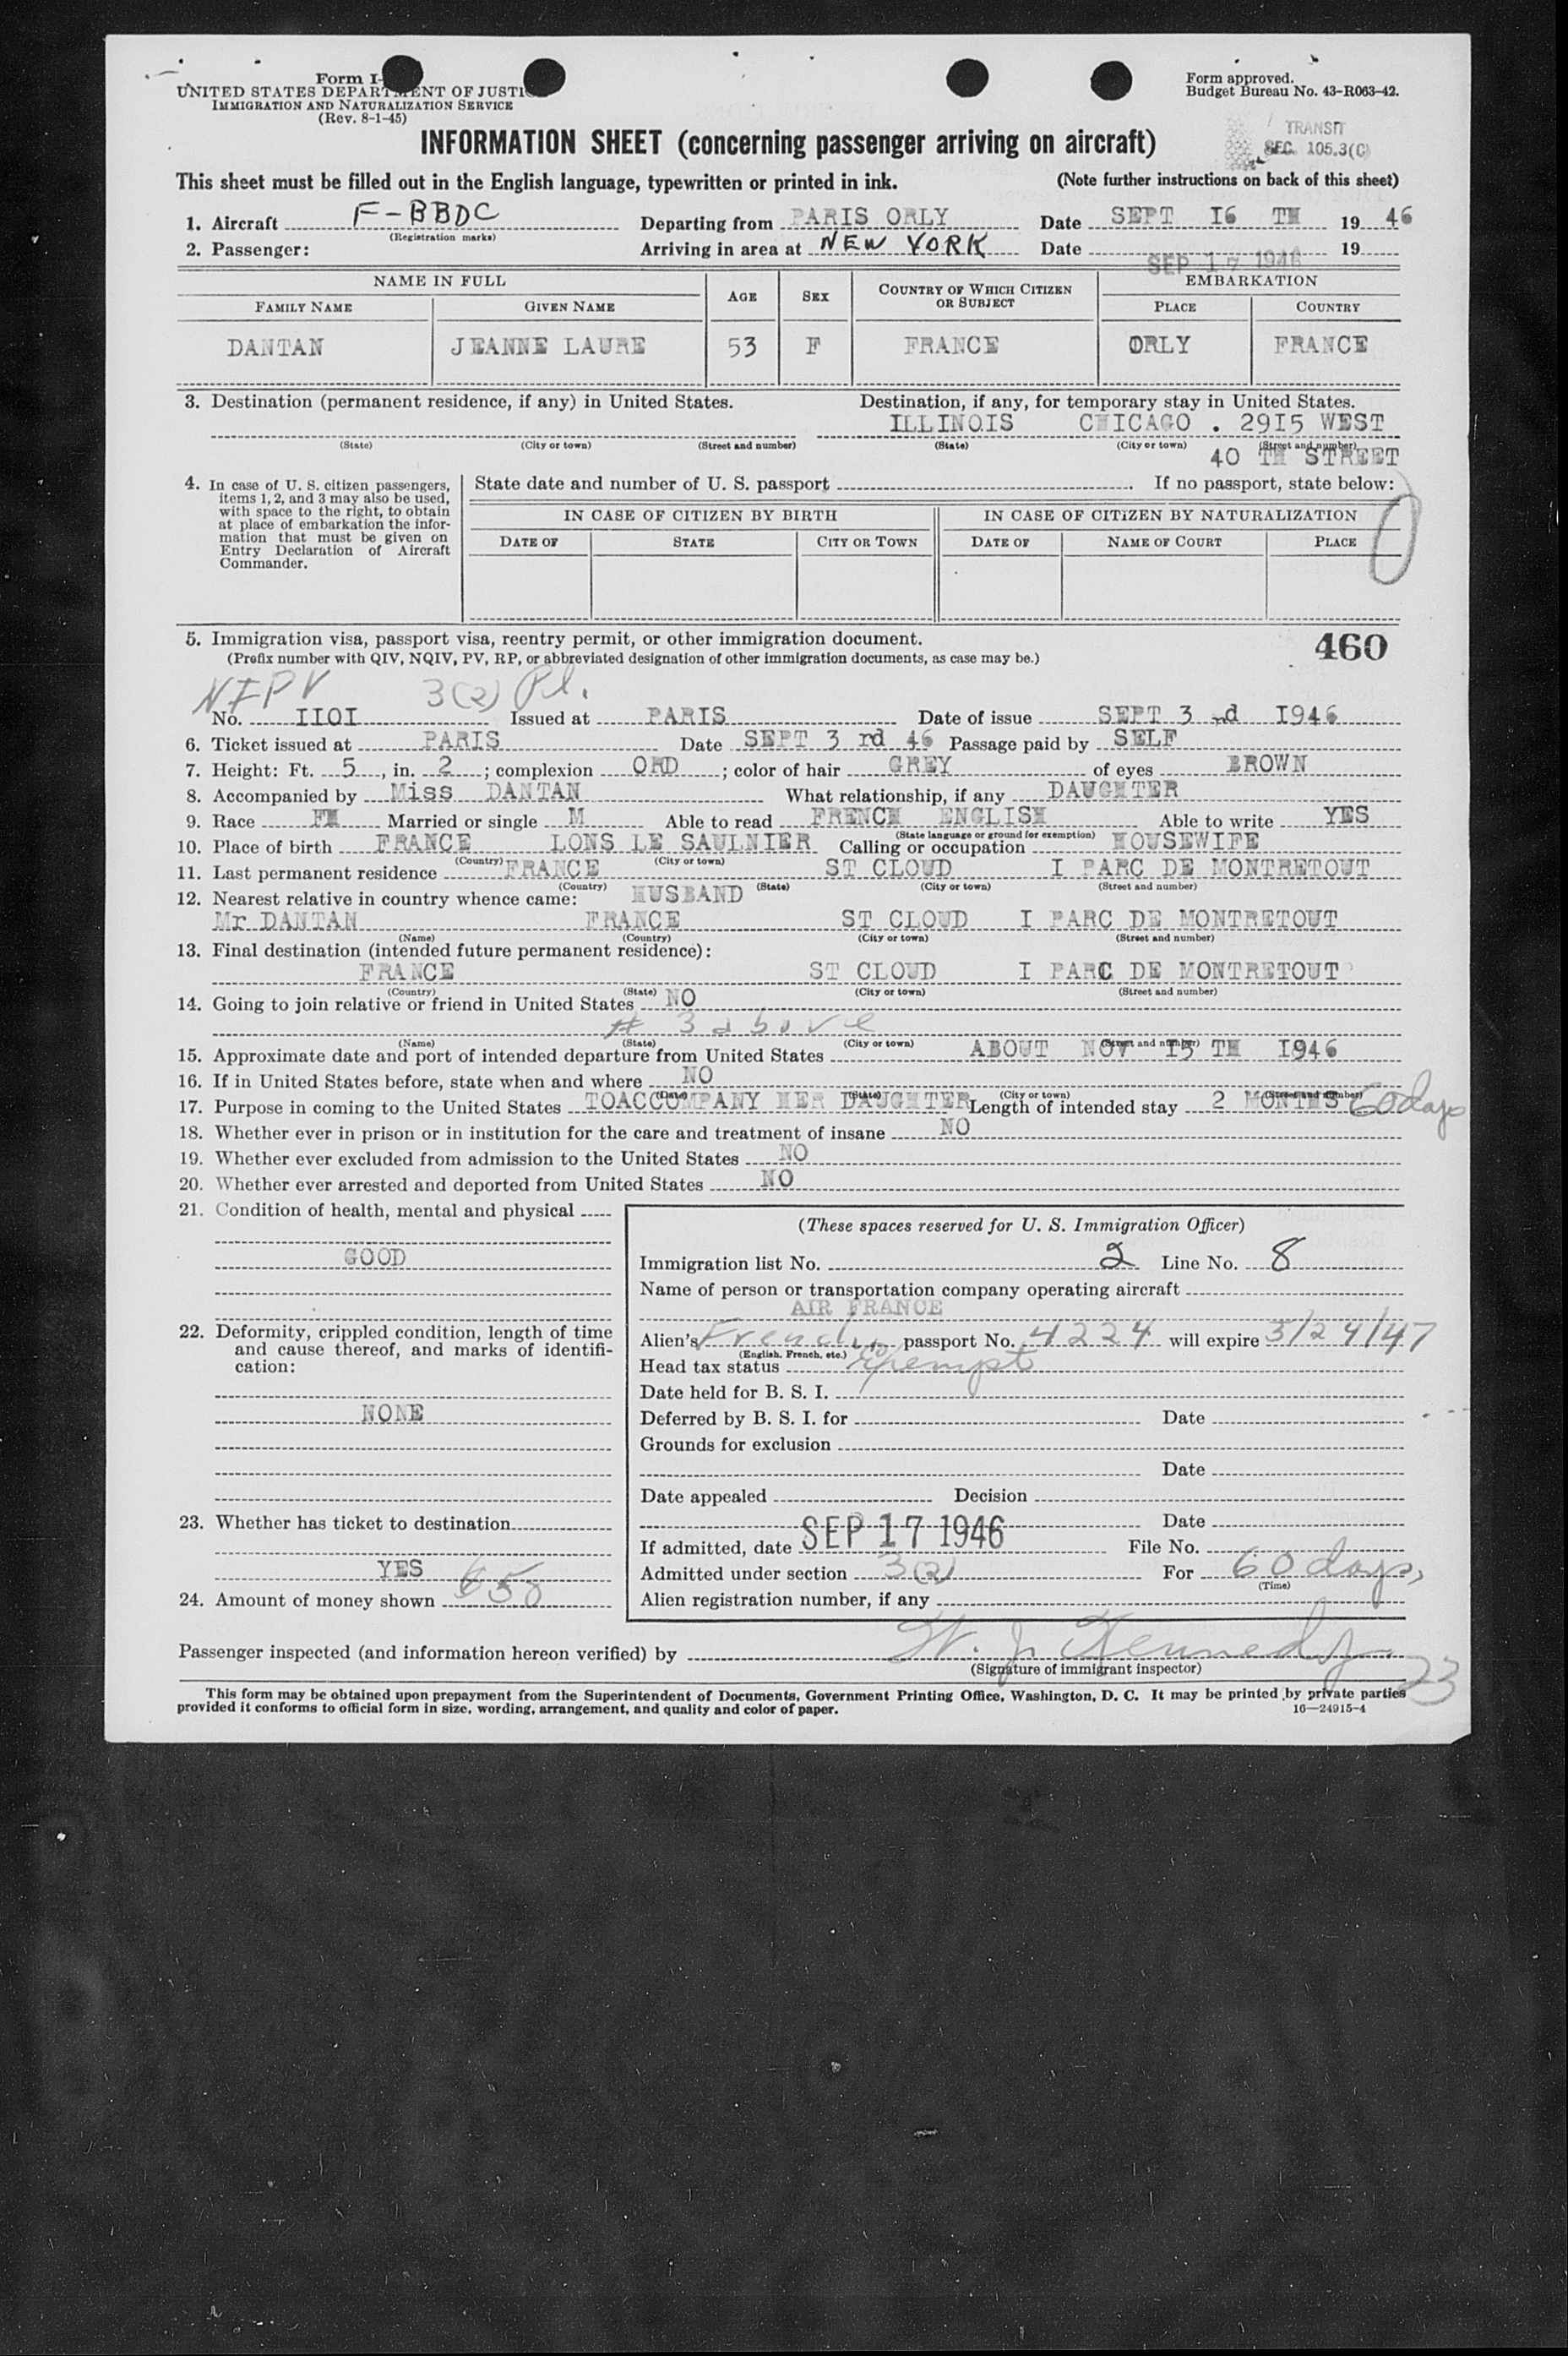 Form I-
UNITED STATES DEPARTMENT OF JUSTI
IMMIGRATION AND NATURALIZATION SERVICE
(Rev. 8-1-45)
Form approved.
Budget Bureau No. 43-R063-42.
TRANSIT
SEC. 105.3(C)
INFORMATION SHEET (concerning passenger arriving on aircraft)
This sheet must be filled out in the English language, typewritten or printed in ink. (Note further instructions on back of this sheet)
1. Aircraft F-BBDC Departing from PARIS ORLY Date SEPT I6 TH 19 46
(Registration marks)
2. Passenger: Arriving in area at NEW YORK Date SEP 17 1946 19
NAME IN FULL AGE SEX COUNTRY OF WHICH CITIZEN OR SUBJECT EMBARKATION
FAMILY NAME GIVEN NAME PLACE COUNTRY
DANTAN JEANNE LAURE 53 F FRANCE ORLY FRANCE
3. Destination (permanent residence, if any) in United States. Destination, if any, for temporary stay in United States.
ILLINOIS CHICAGO . 29I5 WEST
(State) (City or town) (Street and number) (State) (City or town) (Street and number)
40 TH STREET
4. In case of U. S. citizen passengers, items 1, 2, and 3 may also be used, with space to the right, to obtain at place of embarkation the information that must be given on Entry Declaration of Aircraft Commander.
State date and number of U. S. passport . If no passport, state below:
IN CASE OF CITIZEN BY BIRTH IN CASE OF CITIZEN BY NATURALIZATION
DATE OF STATE CITY OR TOWN DATE OF NAME OF COURT PLACE
5. Immigration visa, passport visa, reentry permit, or other immigration document. 460
(Prefix number with QIV, NQIV, PV, RP, or abbreviated designation of other immigration documents, as case may be.)
3(2) Pl.
No. IIOI Issued at PARIS Date of issue SEPT 3 nd I946
6. Ticket issued at PARIS Date SEPT 3 rd 46 Passage paid by SELF
7. Height: Ft. 5, in. 2; complexion ORD; color of hair GREY of eyes BROWN
8. Accompanied by Miss DANTAN What relationship, if any DAUGHTER
9. Race FH Married or single M Able to read FRENCH ENGLISH Able to write YES
(State language or ground for exemption)
10. Place of birth FRANCE LONS LE SAULNIER Calling or occupation HOUSEWIFE
(Country) (City or town)
11. Last permanent residence FRANCE ST CLOUD I PARC DE MONTRETOUT
(Country) (State) (City or town) (Street and number)
12. Nearest relative in country whence came: HUSBAND
Mr DANTAN FRANCE ST CLOUD I PARC DE MONTRETOUT
(Name) (Country) (City or town) (Street and number)
13. Final destination (intended future permanent residence):
FRANCE ST CLOUD I PARC DE MONTRETOUT
(Country) (State) (City or town) (Street and number)
14. Going to join relative or friend in United States NO
# 3 above
(Name) (State) (City or town) (Street and number)
15. Approximate date and port of intended departure from United States ABOUT NOV I5 TH I946
16. If in United States before, state when and where NO
(Date) (State) (City or town) (Street and number)
17. Purpose in coming to the United States TOACCOMPANY HER DAUGHTER Length of intended stay 2 MONTHS 60 days
18. Whether ever in prison or in institution for the care and treatment of insane NO
19. Whether ever excluded from admission to the United States NO
20. Whether ever arrested and deported from United States NO
21. Condition of health, mental and physical
GOOD
22. Deformity, crippled condition, length of time and cause thereof, and marks of identification:
NONE
23. Whether has ticket to destination
YES
24. Amount of money shown 650
(These spaces reserved for U. S. Immigration Officer)
Immigration list No. 2 Line No. 8
Name of person or transportation company operating aircraft
AIR FRANCE
Alien's French passport No. 4224 will expire 3/24/47
(English, French, etc.)
Head tax status Exempt
Date held for B. S. I.
Deferred by B. S. I. for Date
Grounds for exclusion
Date
Date appealed Decision
Date
If admitted, date SEP 17 1946 File No.
Admitted under section 3(2) For 60 days,
(Time)
Alien registration number, if any
Passenger inspected (and information hereon verified) by W. J. Kennedy
(Signature of immigrant inspector)
23
This form may be obtained upon prepayment from the Superintendent of Documents, Government Printing Office, Washington, D. C. It may be printed by private parties
provided it conforms to official form in size, wording, arrangement, and quality and color of paper. 16—24915-4